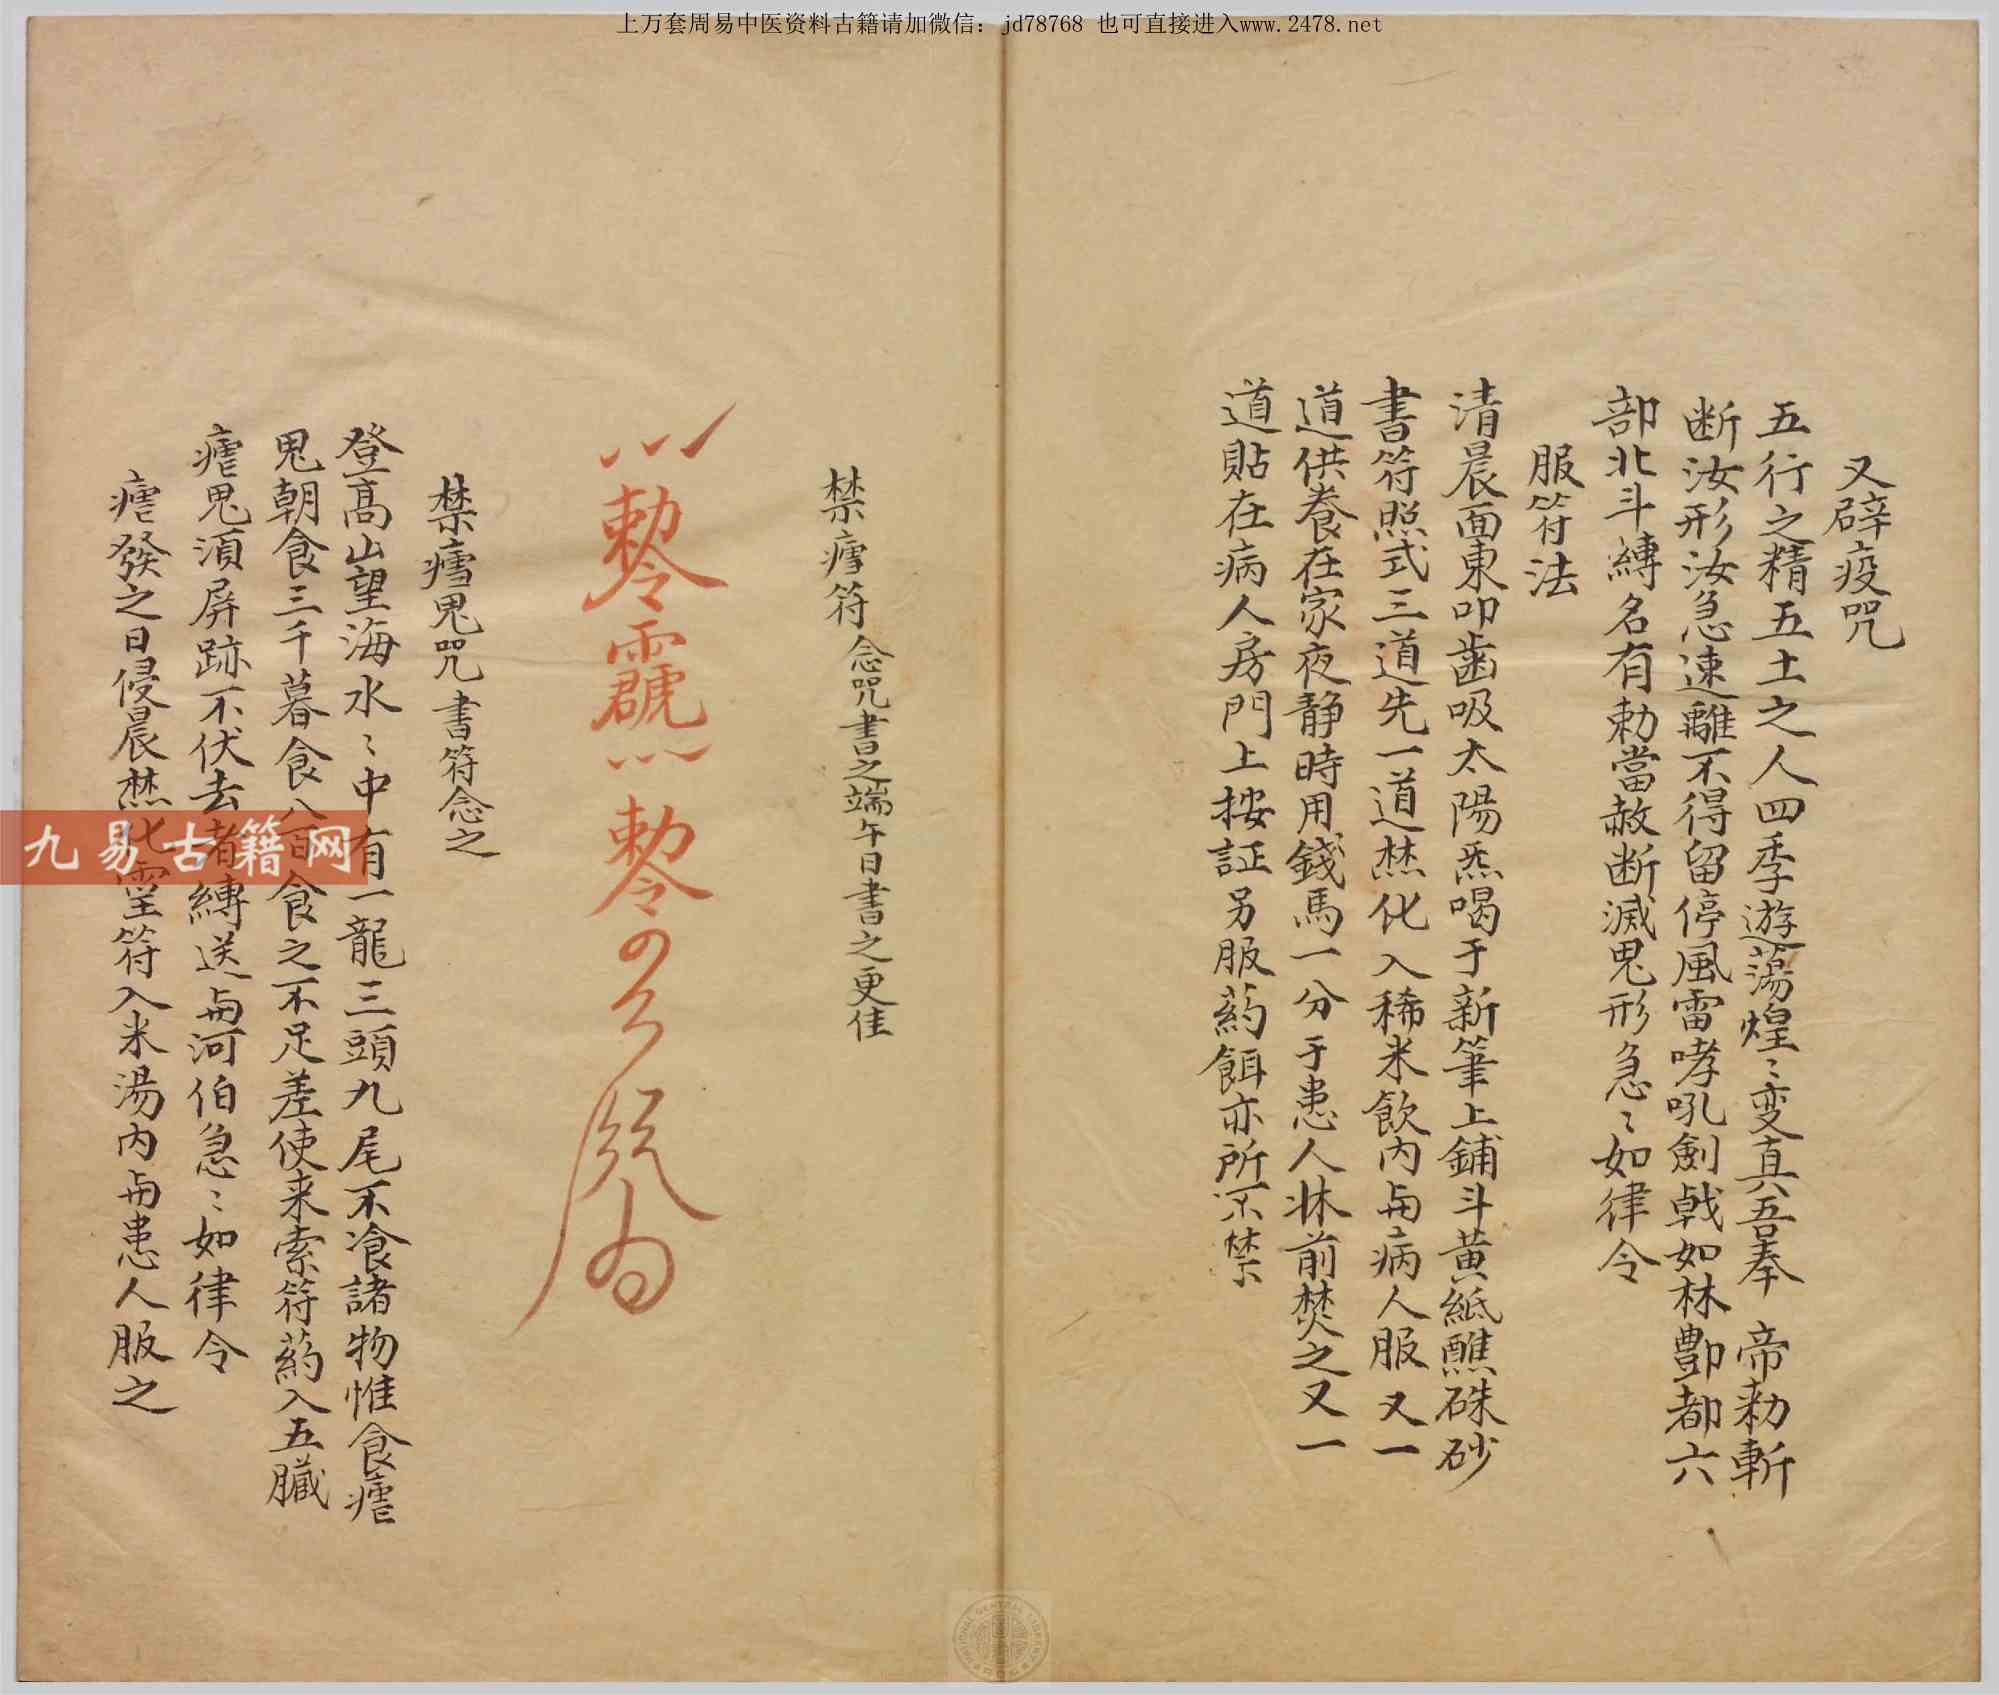 上万套周易中医资料古籍请加微信：jd78768 也可直接进入www.2478.net
又辟疫咒
五行之精五土之人四季遊蕩煌〻变真吾奉 帝勅斬
断汝形汝急速離不得留停風雷哮吼劍戟如林酆都六
部北斗縛名有勅當赦断滅鬼形急〻如律令
服符法
清晨面東叩齒吸太陽炁喝于新筆上鋪斗黄紙醮硃砂
書符照式三道先一道焚化入稀米飲內与病人服又一
道供養在家夜静時用錢馬一分于患人牀前焚之又一
道貼在病人房門上按証另服葯餌亦所不禁
禁瘧符 念咒書之端午日書之更佳
勅令
勅令
禁瘧鬼咒 書符念之
登高山望海水〻中有一龍三頭九尾不飡諸物惟食瘧
鬼朝食三千暮食八百食之不足差使来索符葯入五臟
瘧鬼湏屏跡不伏去者縛送与河伯急〻如律令
瘧發之日侵晨焚化霊符入米湯內与患人服之
九易古籍网